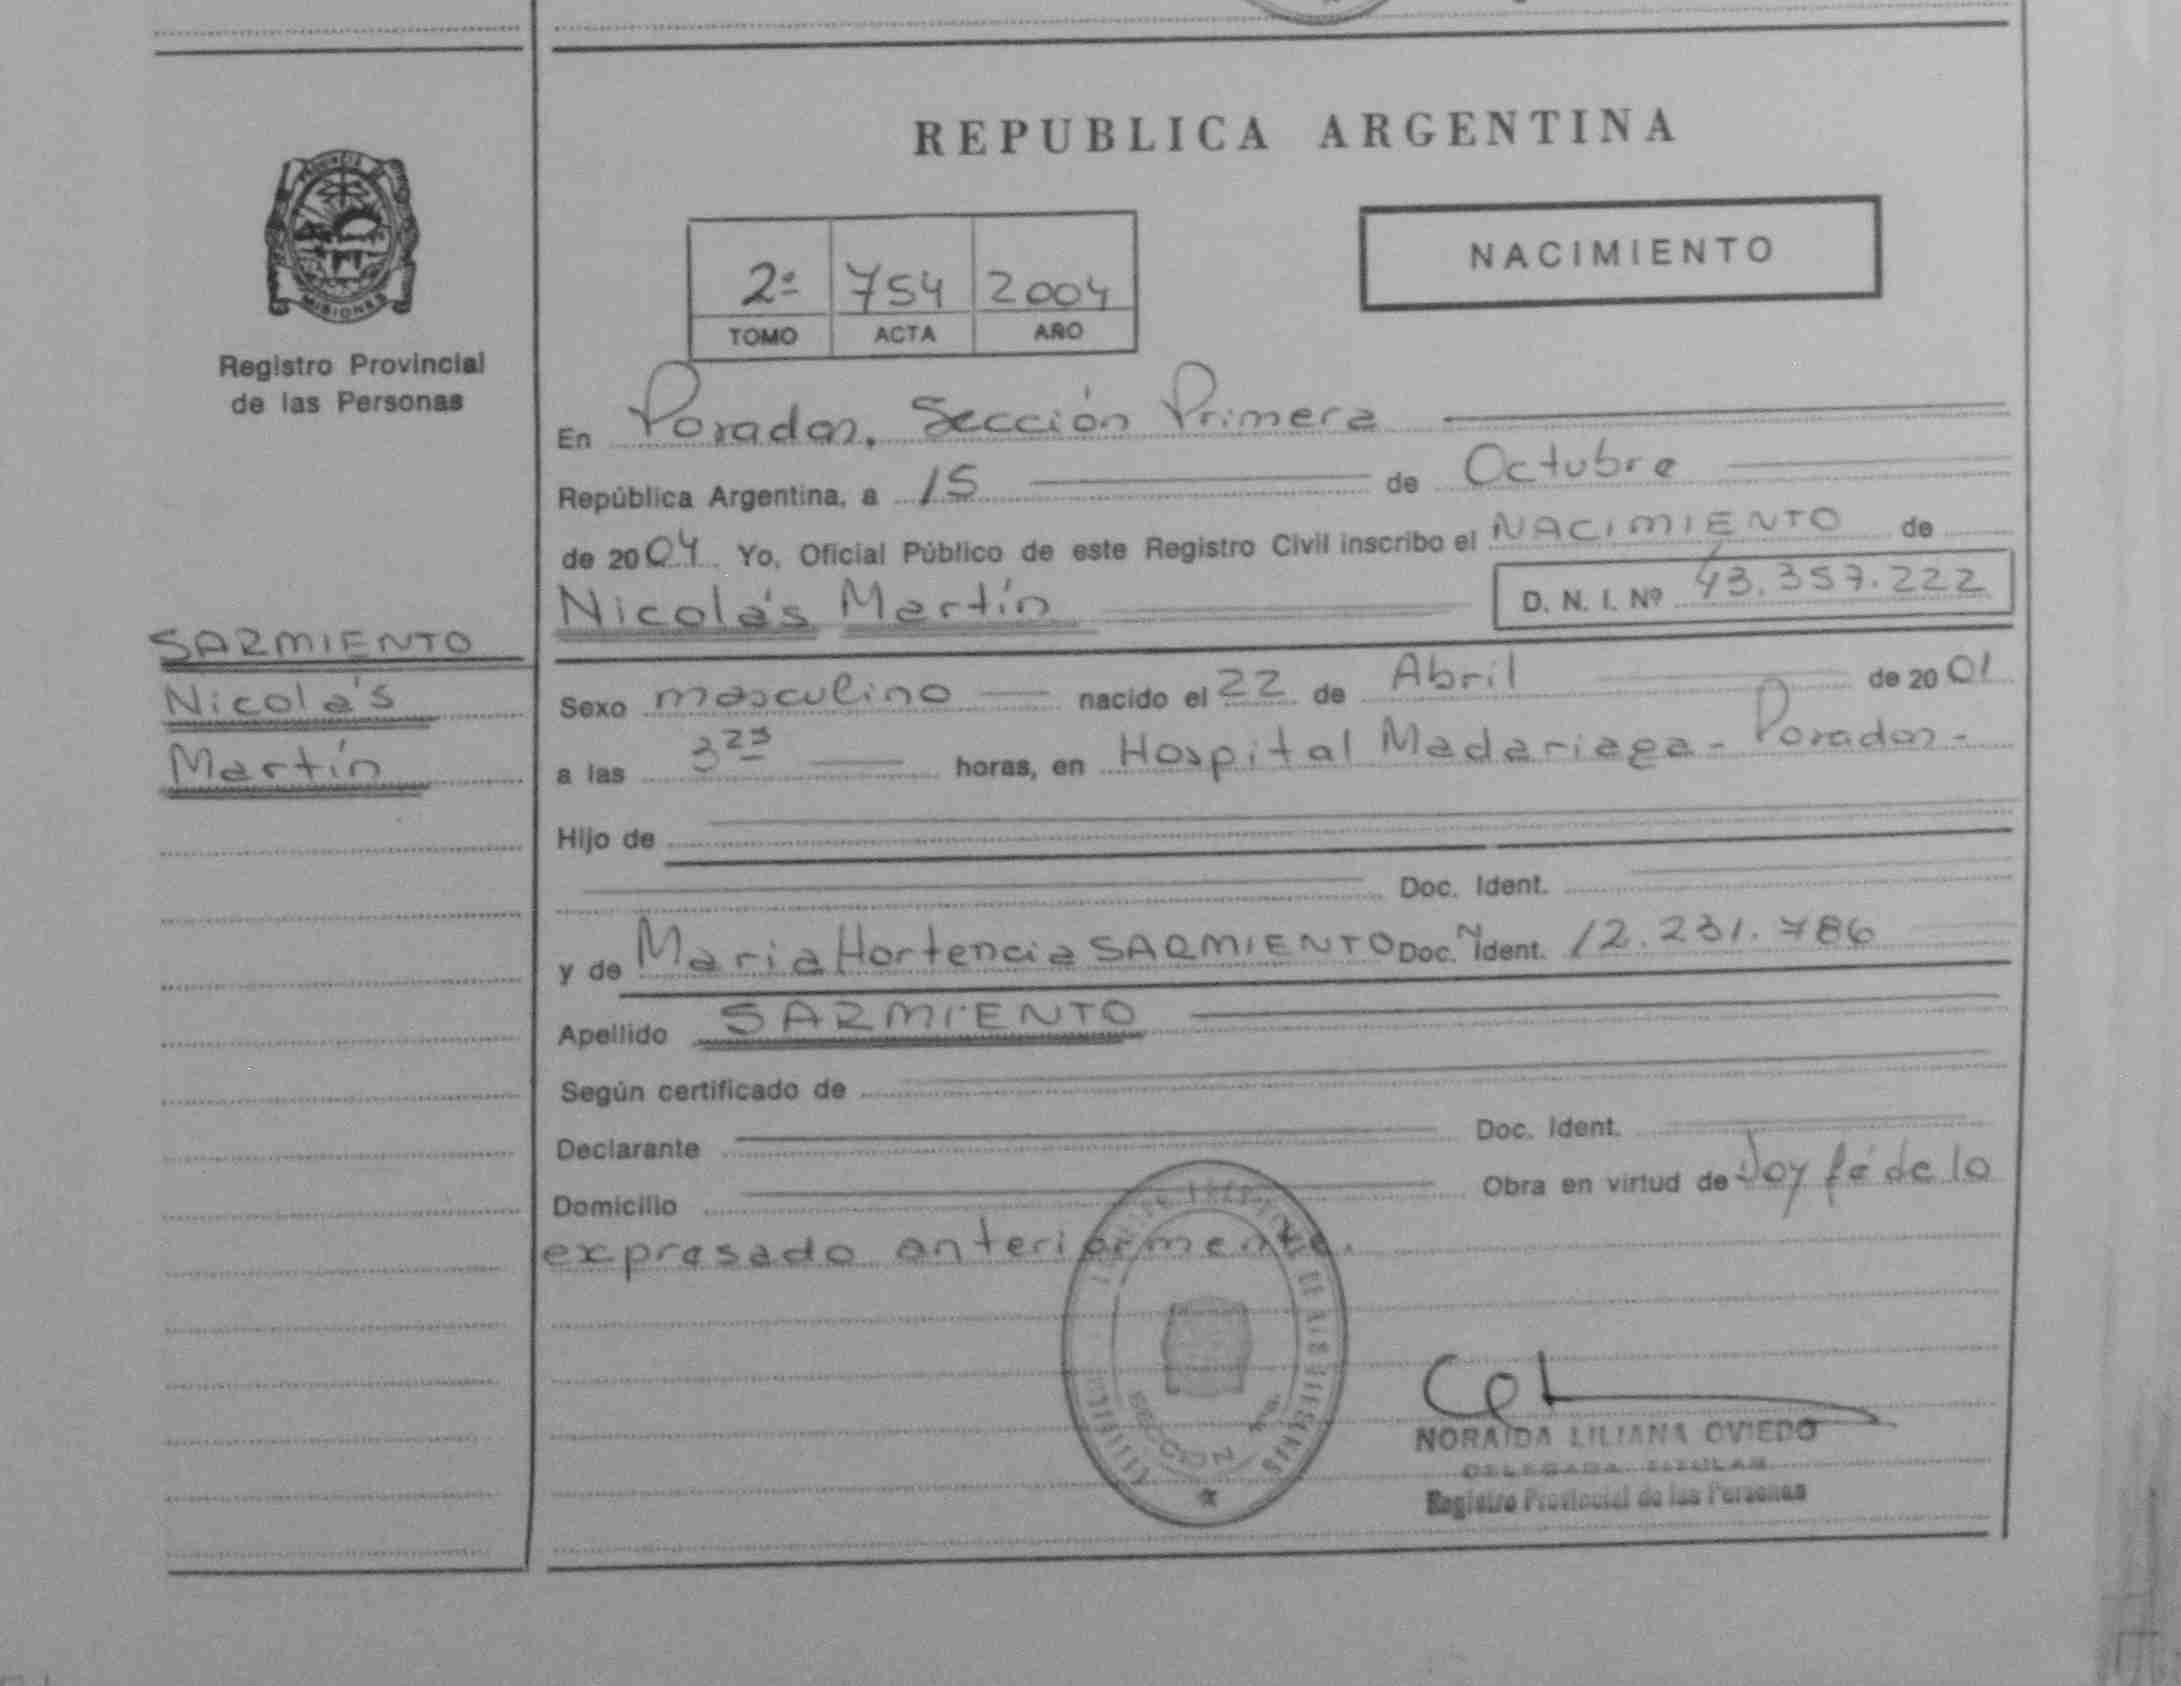 REPUBLICA ARGENTINA
NACIMIENTO
2º 754 2004
TOMO ACTA AÑO
MISIONES
Registro Provincial
de las Personas
En Posadas, Sección Primera
República Argentina, a 15 de Octubre
de 2004 Yo, Oficial Público de este Registro Civil inscribo el NACIMIENTO de
Nicolás Martín D. N. I. Nº 43.357.222
SARMIENTO
Nicolás
Martín
Sexo masculino nacido el 22 de Abril de 2001
a las 3 horas, en Hospital Madariaga - Posadas -
Hijo de
Doc. Ident.
y de Maria Hortencia SARMIENTO Doc. Ident. 12.231.786
Apellido SARMIENTO
Según certificado de
Declarante Doc. Ident.
Domicilio Obra en virtud de Doy fé de lo
expresado anteriormente.
SECCION
NORAIDA LILIANA OVIEDO
DELEGADA TITULAR
Registro Provincial de las Personas